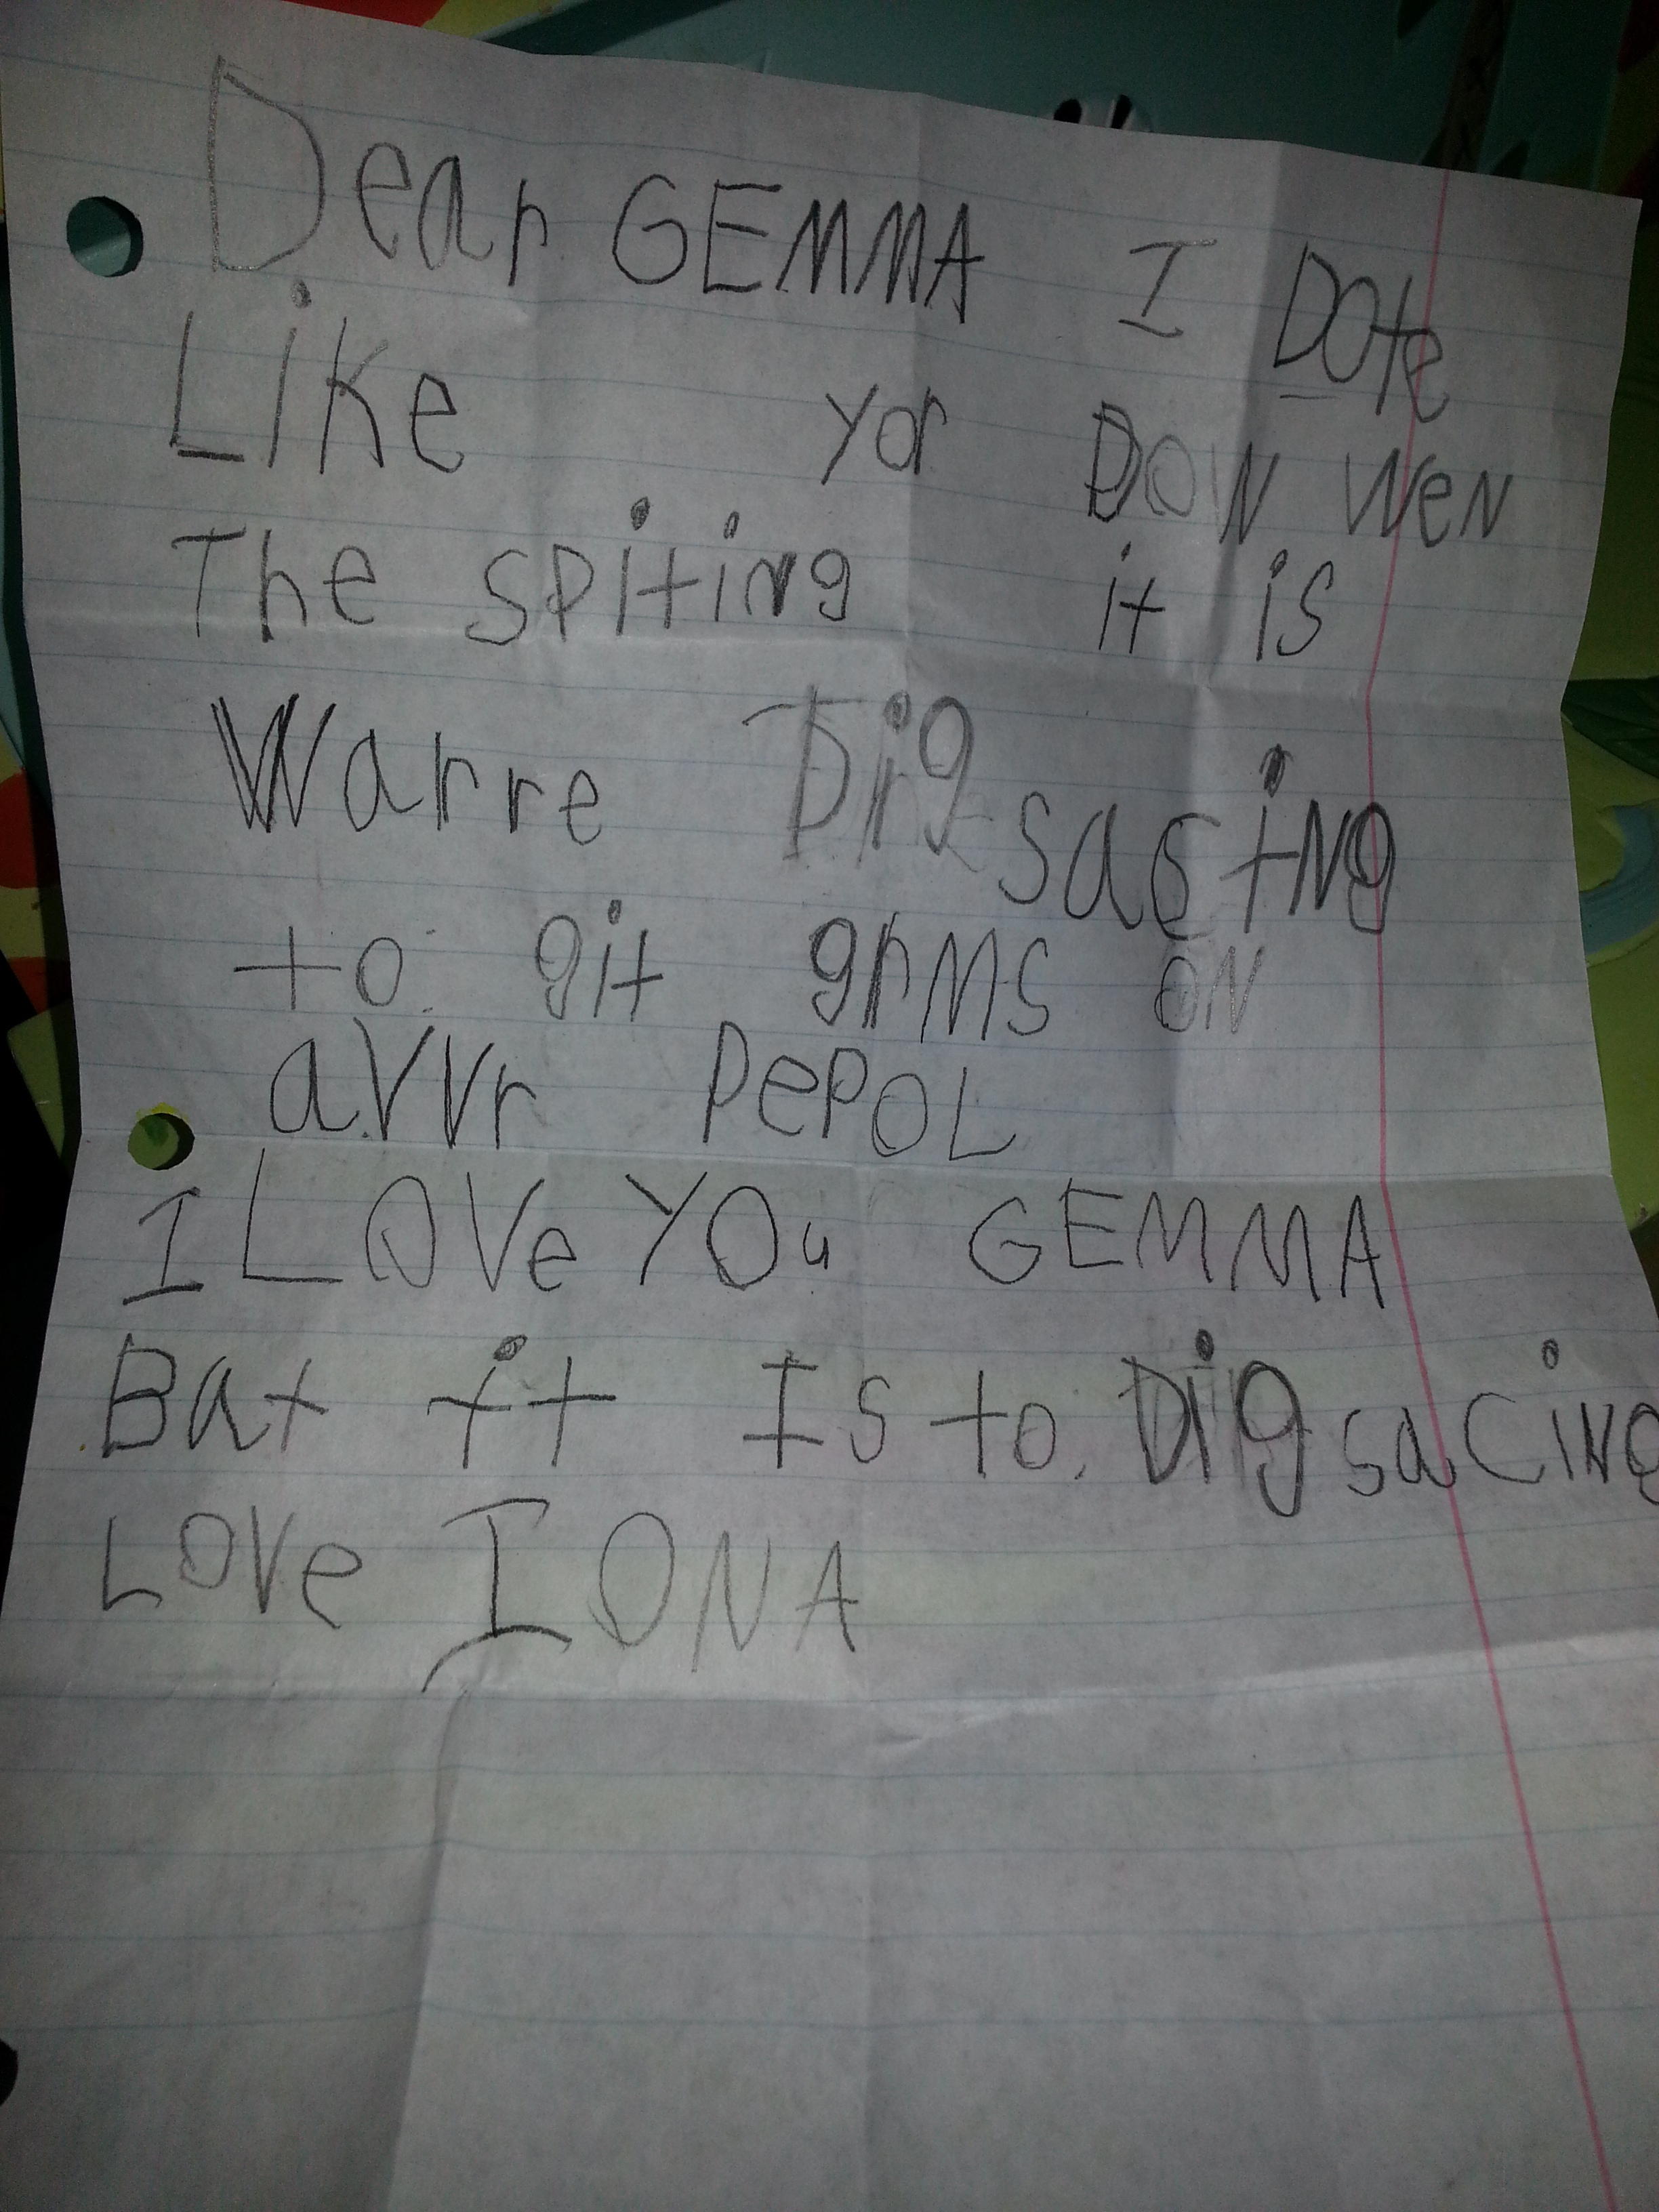 Dear GEMMA I DOte
Like yor DOW WeN
The spiting it is
Warre Digsacting
to git grms ON
avvr PePOL
I LOVe YOu GEMMA
Bat it Is to Digsacing
LOVe IONA